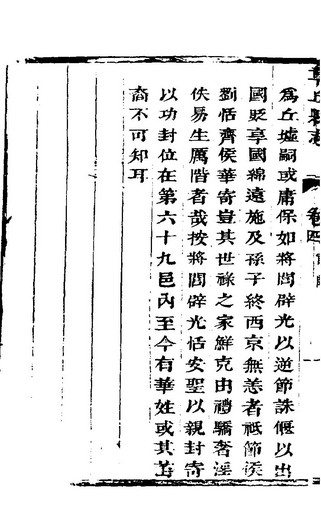 章丘縣志
卷四
為丘墟嗣或庸保如將閭辟光以逆節誅偃以出
國貶享國綿遠施及孫子終西京無恙者祇節侯
劉恬齊侯華寄豈其世祿之家鮮克由禮驕奢淫
佚易生厲階者哉按將閭辟光恬安聖以親封寄
以功封位在第六十九邑內至今有華姓或其苗
裔不可知耳